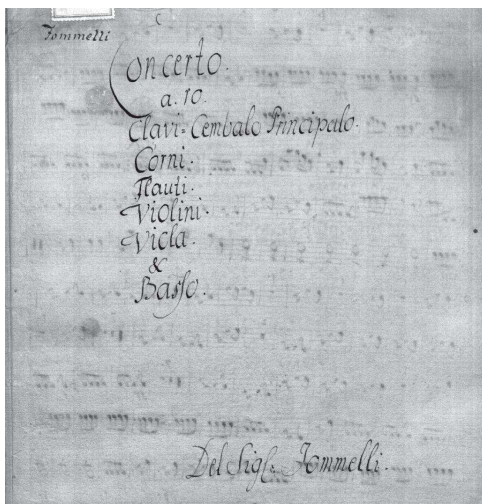 Jommelli
Concerto.
a. 10.
Clavi-Cembalo Principalo.
Corni.
Flauti.
Violini.
Viola.
&
Basso.
Del Sigr: Jommelli.